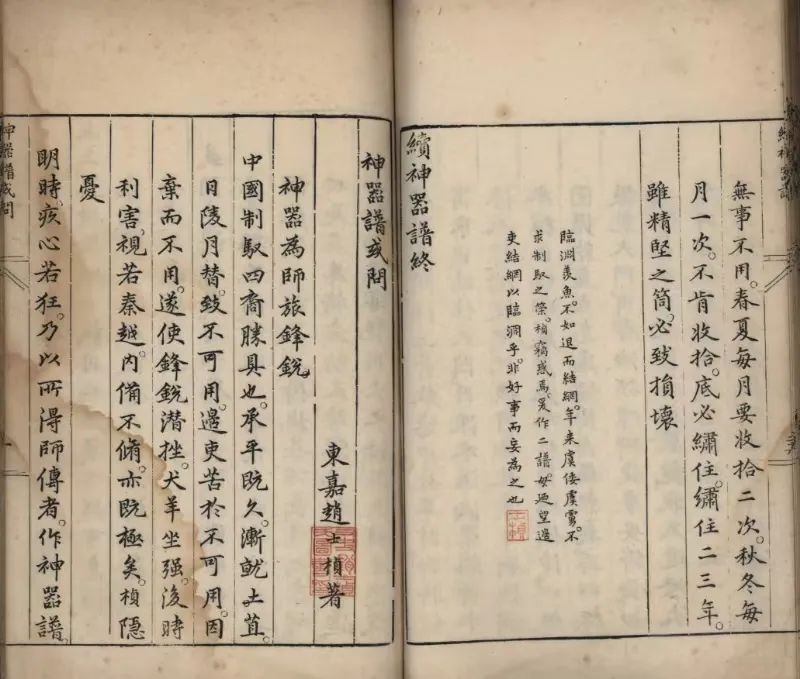 續神器譜
無事不用。春夏每月要收拾二次。秋冬每
月一次。不肯收拾。底必繡住。繡住二三年。
雖精堅之筒。必致損壞
臨淵羨魚。不如退而結網。年來虞倭虞虜。不
求制馭之策。楨竊惑焉。爰作二譜。毋廼望邉
吏結網以臨淵乎。非好事而妄為之也
續神器譜終
神器譜或問
東嘉趙士楨著
神器為師旅鋒銳
中國制馭四裔勝具也。承平既久。漸就土苴。
日陵月替。致不可用。邉吏苦於不可用。因
棄而不用。遂使鋒銳潛挫。犬羊坐强。後時
利害。視若秦越。内備不脩。亦既極矣。楨隱
憂
明時。疾心若狂。乃以所得師傳者。作神器譜。
神器譜或問